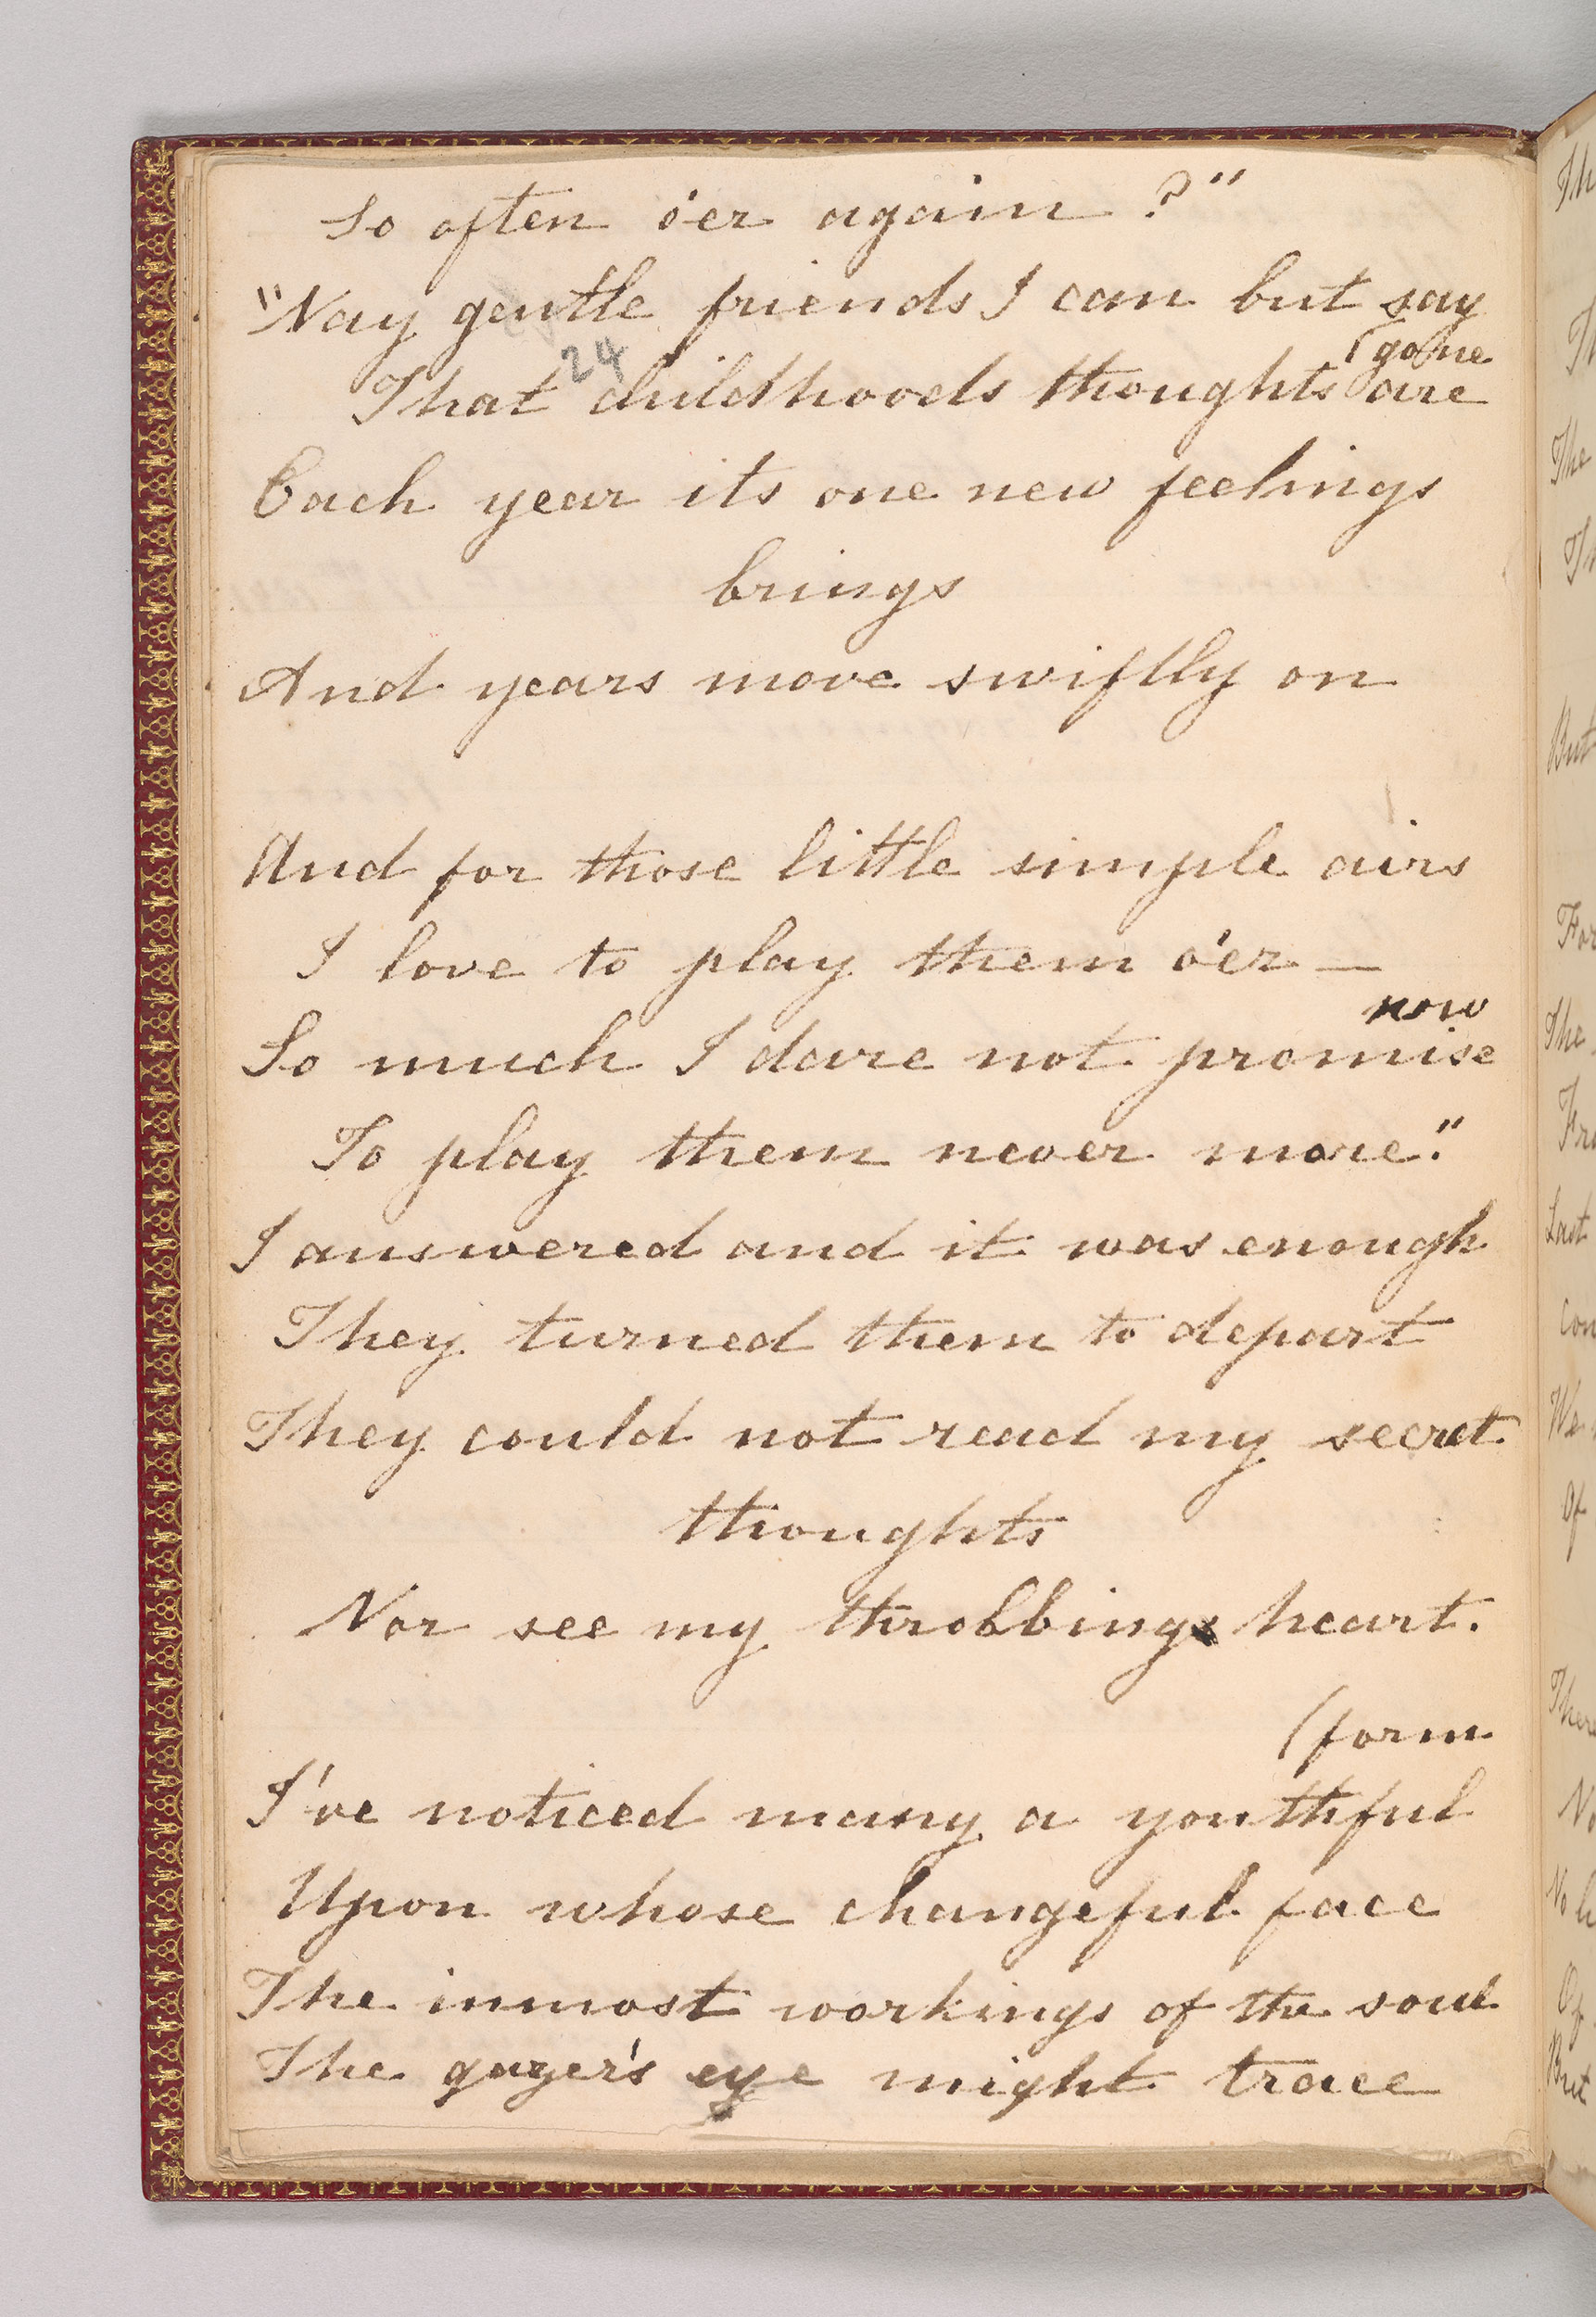 So often o'er again ?"
"Nay gentle friends I can but say
(gone
24
That childhoods thoughts are
Each year its one new feelings
brings
And years move swiftly on
And for those little simple airs
I love to play them o'er —
now
So much I dare not promise
To play them never more."
I answered and it was enough
They turned them to depart
They could not read my secret
thoughts
Nor see my throbbing heart.
(form
I've noticed many a youthful
Upon whose changeful face
The inmost workings of the soul
The gazer's eye might trace
Th
The
But
For
The
Last
We
Of
There
No
No
Of
But